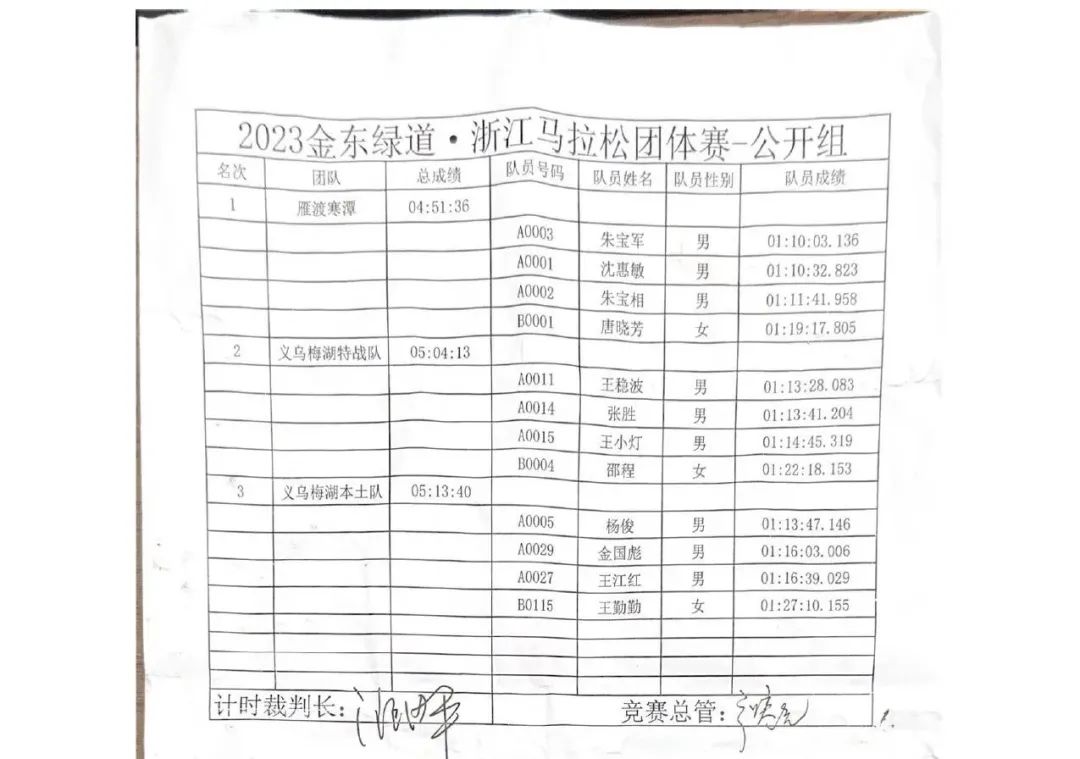 2023金东绿道·浙江马拉松团体赛-公开组
名次 团队 总成绩 队员号码 队员姓名 队员性别 队员成绩
1 雁渡寒潭 04:51:36
A0003 朱宝军 男 01:10:03.136
A0001 沈惠敏 男 01:10:32.823
A0002 朱宝相 男 01:11:41.958
B0001 唐晓芳 女 01:19:17.805
2 义乌梅湖特战队 05:04:13
A0011 王稳波 男 01:13:28.083
A0014 张胜 男 01:13:41.204
A0015 王小灯 男 01:14:45.319
B0004 邵程 女 01:22:18.153
3 义乌梅湖本土队 05:13:40
A0005 杨俊 男 01:13:47.146
A0029 金国彪 男 01:16:03.006
A0027 王江红 男 01:16:39.029
B0115 王勤勤 女 01:27:10.155
计时裁判长: 竞赛总管: